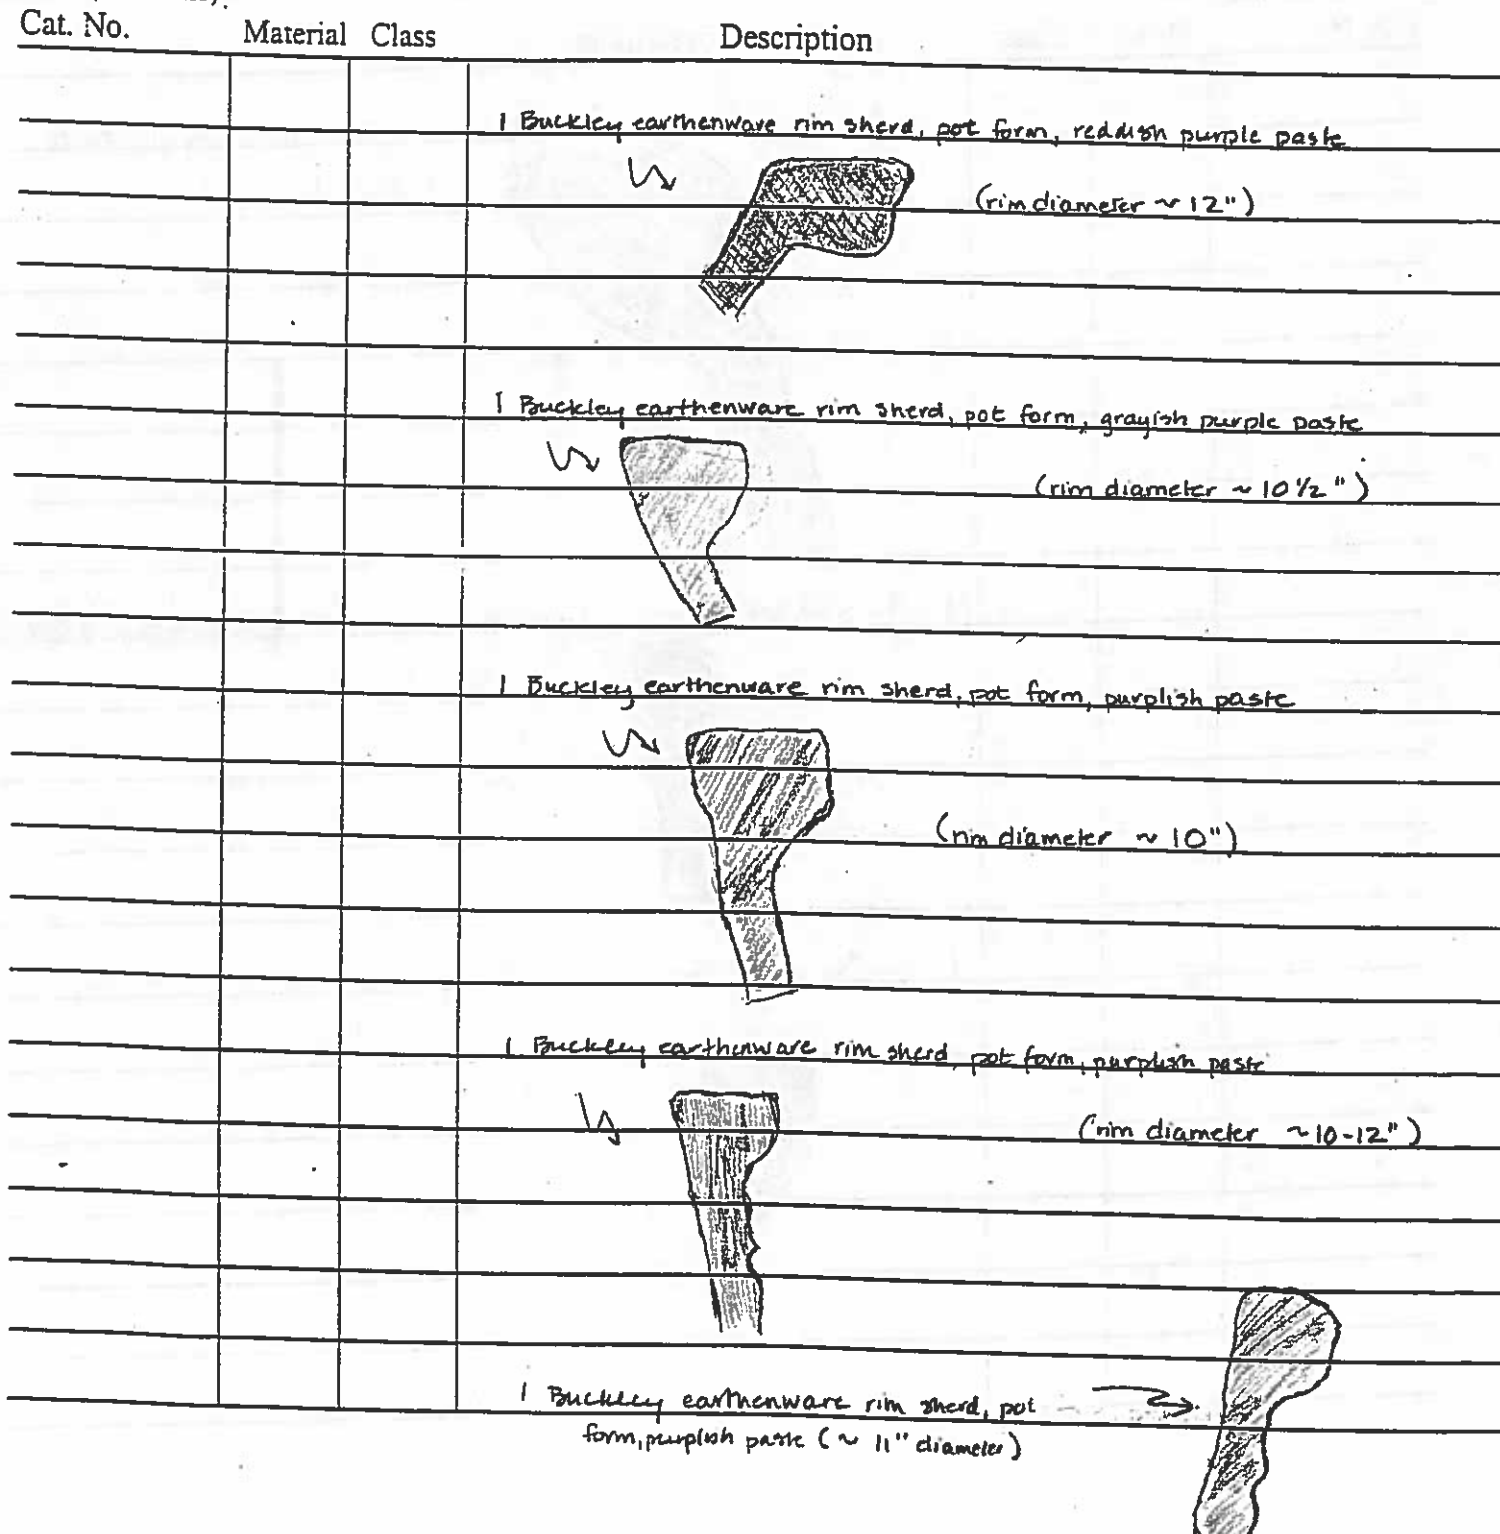 Cat. No. Material Class Description
1 Buckley earthenware rim sherd, pot form, reddish purple paste
(rim diameter ~ 12")
1 Buckley earthenware rim sherd, pot form, grayish purple paste
(rim diameter ~ 10 1/2")
1 Buckley earthenware rim sherd, pot form, purplish paste
(rim diameter ~ 10")
1 Buckley earthenware rim sherd, pot form, purplish paste
(rim diameter ~10-12")
1 Buckley earthenware rim sherd, pot
form, purplish paste (~ 11" diameter)